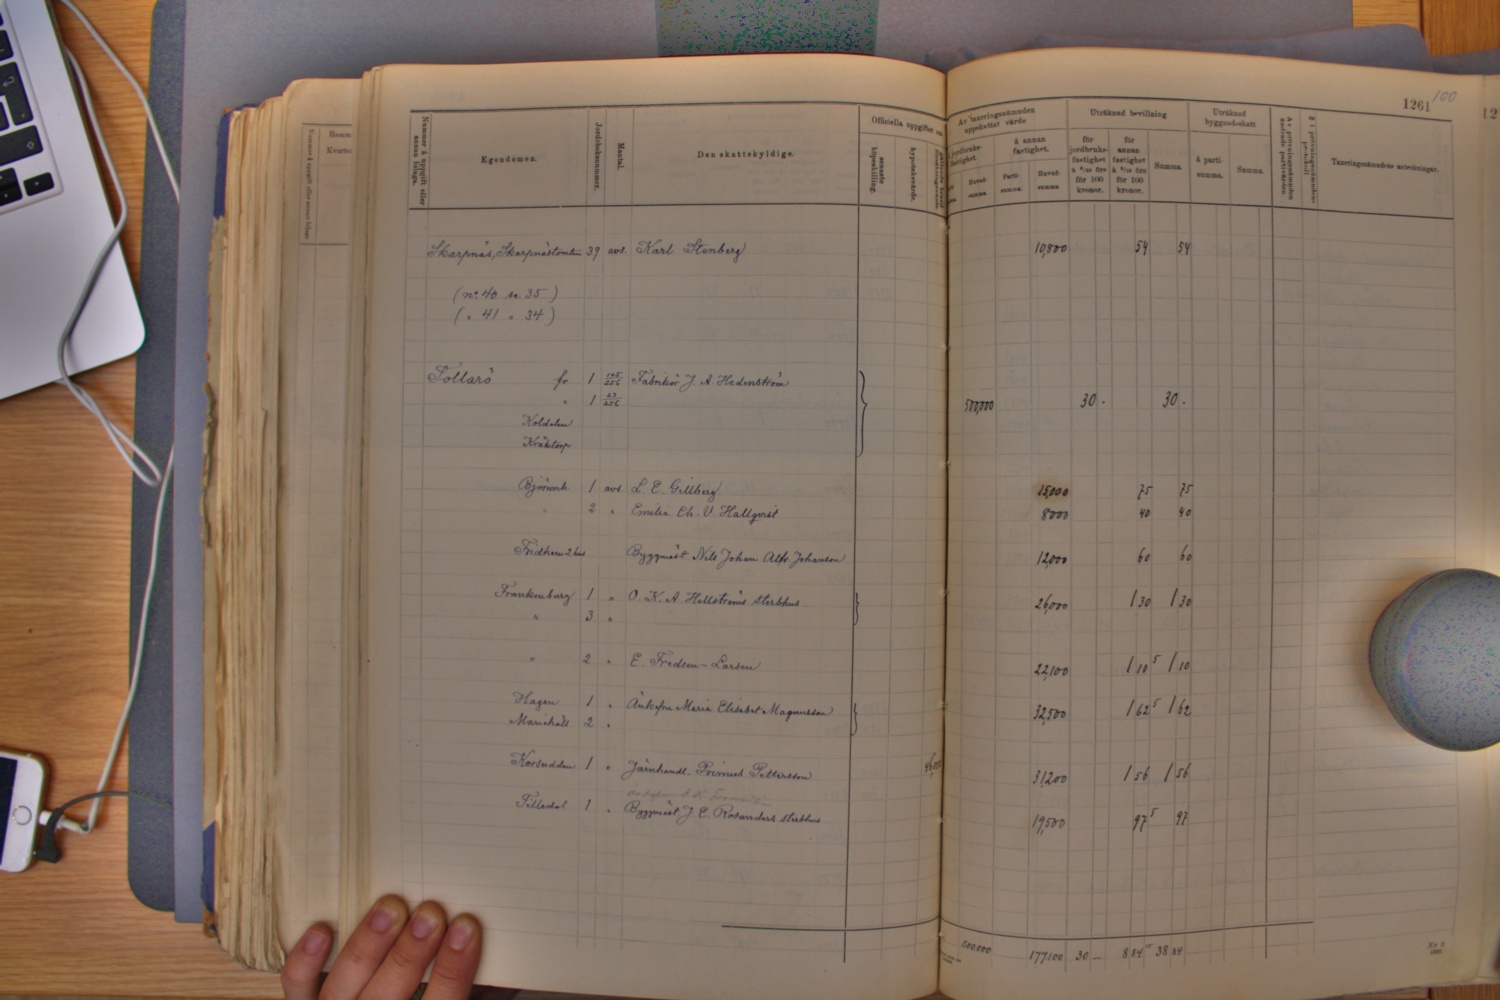 1261 100
Nummer å uppgift eller annan bilaga.
Egendomen.
Jordeboksnummer.
Mantal.
Den skattskyldige.
Officiella uppgifter om
senaste köpeskilling.
hypoteksvärde.
Av taxeringsnämnden uppskattat värde
jordbruks-fastighet.
å annan fastighet.
Huvud-summa.
Parti-summa.
Huvud-summa.
Uträknad bevillning
för jordbruks-fastighet
för 100 kronor.
för annan fastighet
för 100 kronor.
Summa.
Uträknad byggnadsskatt
å parti-summa.
Summa.
Taxeringsnämndens anteckningar.
Skarpnäs, Skarpnästomten 39 avs. Karl Stenberg 10,800 54 54
(nº 40 se 35)
(" 41 " 34)
Tollarö fr. 1 Fabrikör J. A. Hedenström
" 1 23/256 500,000 30 - 30 -
Koldalen
Kråktorp
Björnvik 1 avs. L. E. Gillberg 15,000 75 75
" 2 " Emilia Ch. V. Hallqvist 8000 40 40
Fridhem 2 hus Byggmäst Nils Johan Alfr. Johansson 12,000 60 60
Frankenburg 1 " O. K. A. Hellströms sterbhus 26,000 1 30 1 30
" 3 "
" 2 " E. Fredsen-Larsen 22,100 1 10 5 1 10
Hagen 1 " Änkefru Maria Elisabet Magnusson 32,500 1 62 5 1 62
Mariehäll 2 "
Korsudden 1 " Järnhandl. Primus Pettersson 31,200 1 56 1 56
Änkefru
Tilledal 1 " Byggmäst J. E. Rosanders sterbhus 19,500 97 5 97
500,000 177,100 30 - 8 84 38 84